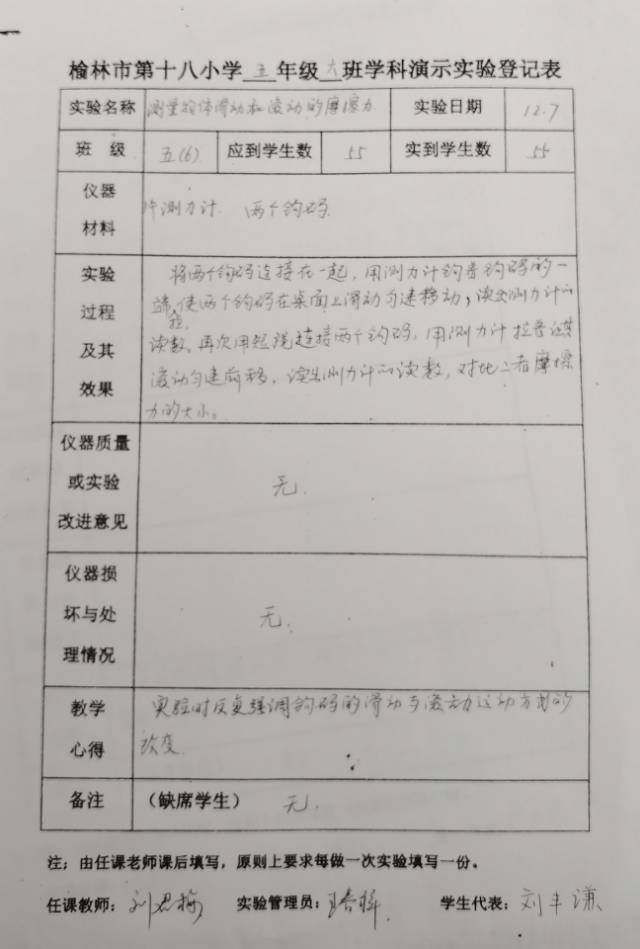 榆林市第十八小学五年级六班学科演示实验登记表
实验名称 测量物体滑动和滚动的摩擦力 实验日期 12.7
班 级 五(6) 应到学生数 55 实到学生数 55
仪器材料 测力计. 两个钩码.
实验过程及其效果
将两个钩码连接在一起,用测力计钩着钩码的一
端,使两个钩码在桌面上滑动匀速移动,读出测力计的
读数,再次用短线连接两个钩码,用测力计拉着让其
滚动匀速前移,读出测力计的读数,对比二者摩擦
力的大小。
仪器质量或实验改进意见 无.
仪器损坏与处理情况 无.
教学心得
实验时反复强调钩码的滑动与滚动运动方式的
改变.
备注 (缺席学生) 无.
注:由任课老师课后填写,原则上要求每做一次实验填写一份。
任课教师: 实验管理员: 学生代表:刘丰谦